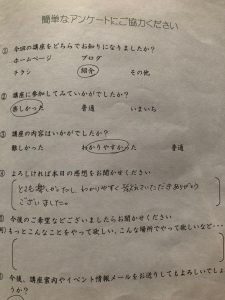 簡単なアンケートにご協力ください
① 今回の講座をどちらでお知りになりましたか？
ホームページ ブログ
チラシ 紹介 その他
② 講座に参加してみていかがでしたか？
楽しかった 普通 いまいち
③ 講座の内容はいかがでしたか？
難しかった わかりやすかった 普通
④ よろしければ本日の感想をお聞かせください
とても楽しかったし、わかりやすく教えていただきありがとう
ございました。
⑤ 今後のご希望などございましたらお聞かせください
もっとこんなことをやって欲しい、こんな場所でやって欲しいなど・・・
今後、講座案内やイベント情報メールをお送りしてもよろしいでしょ
うか？